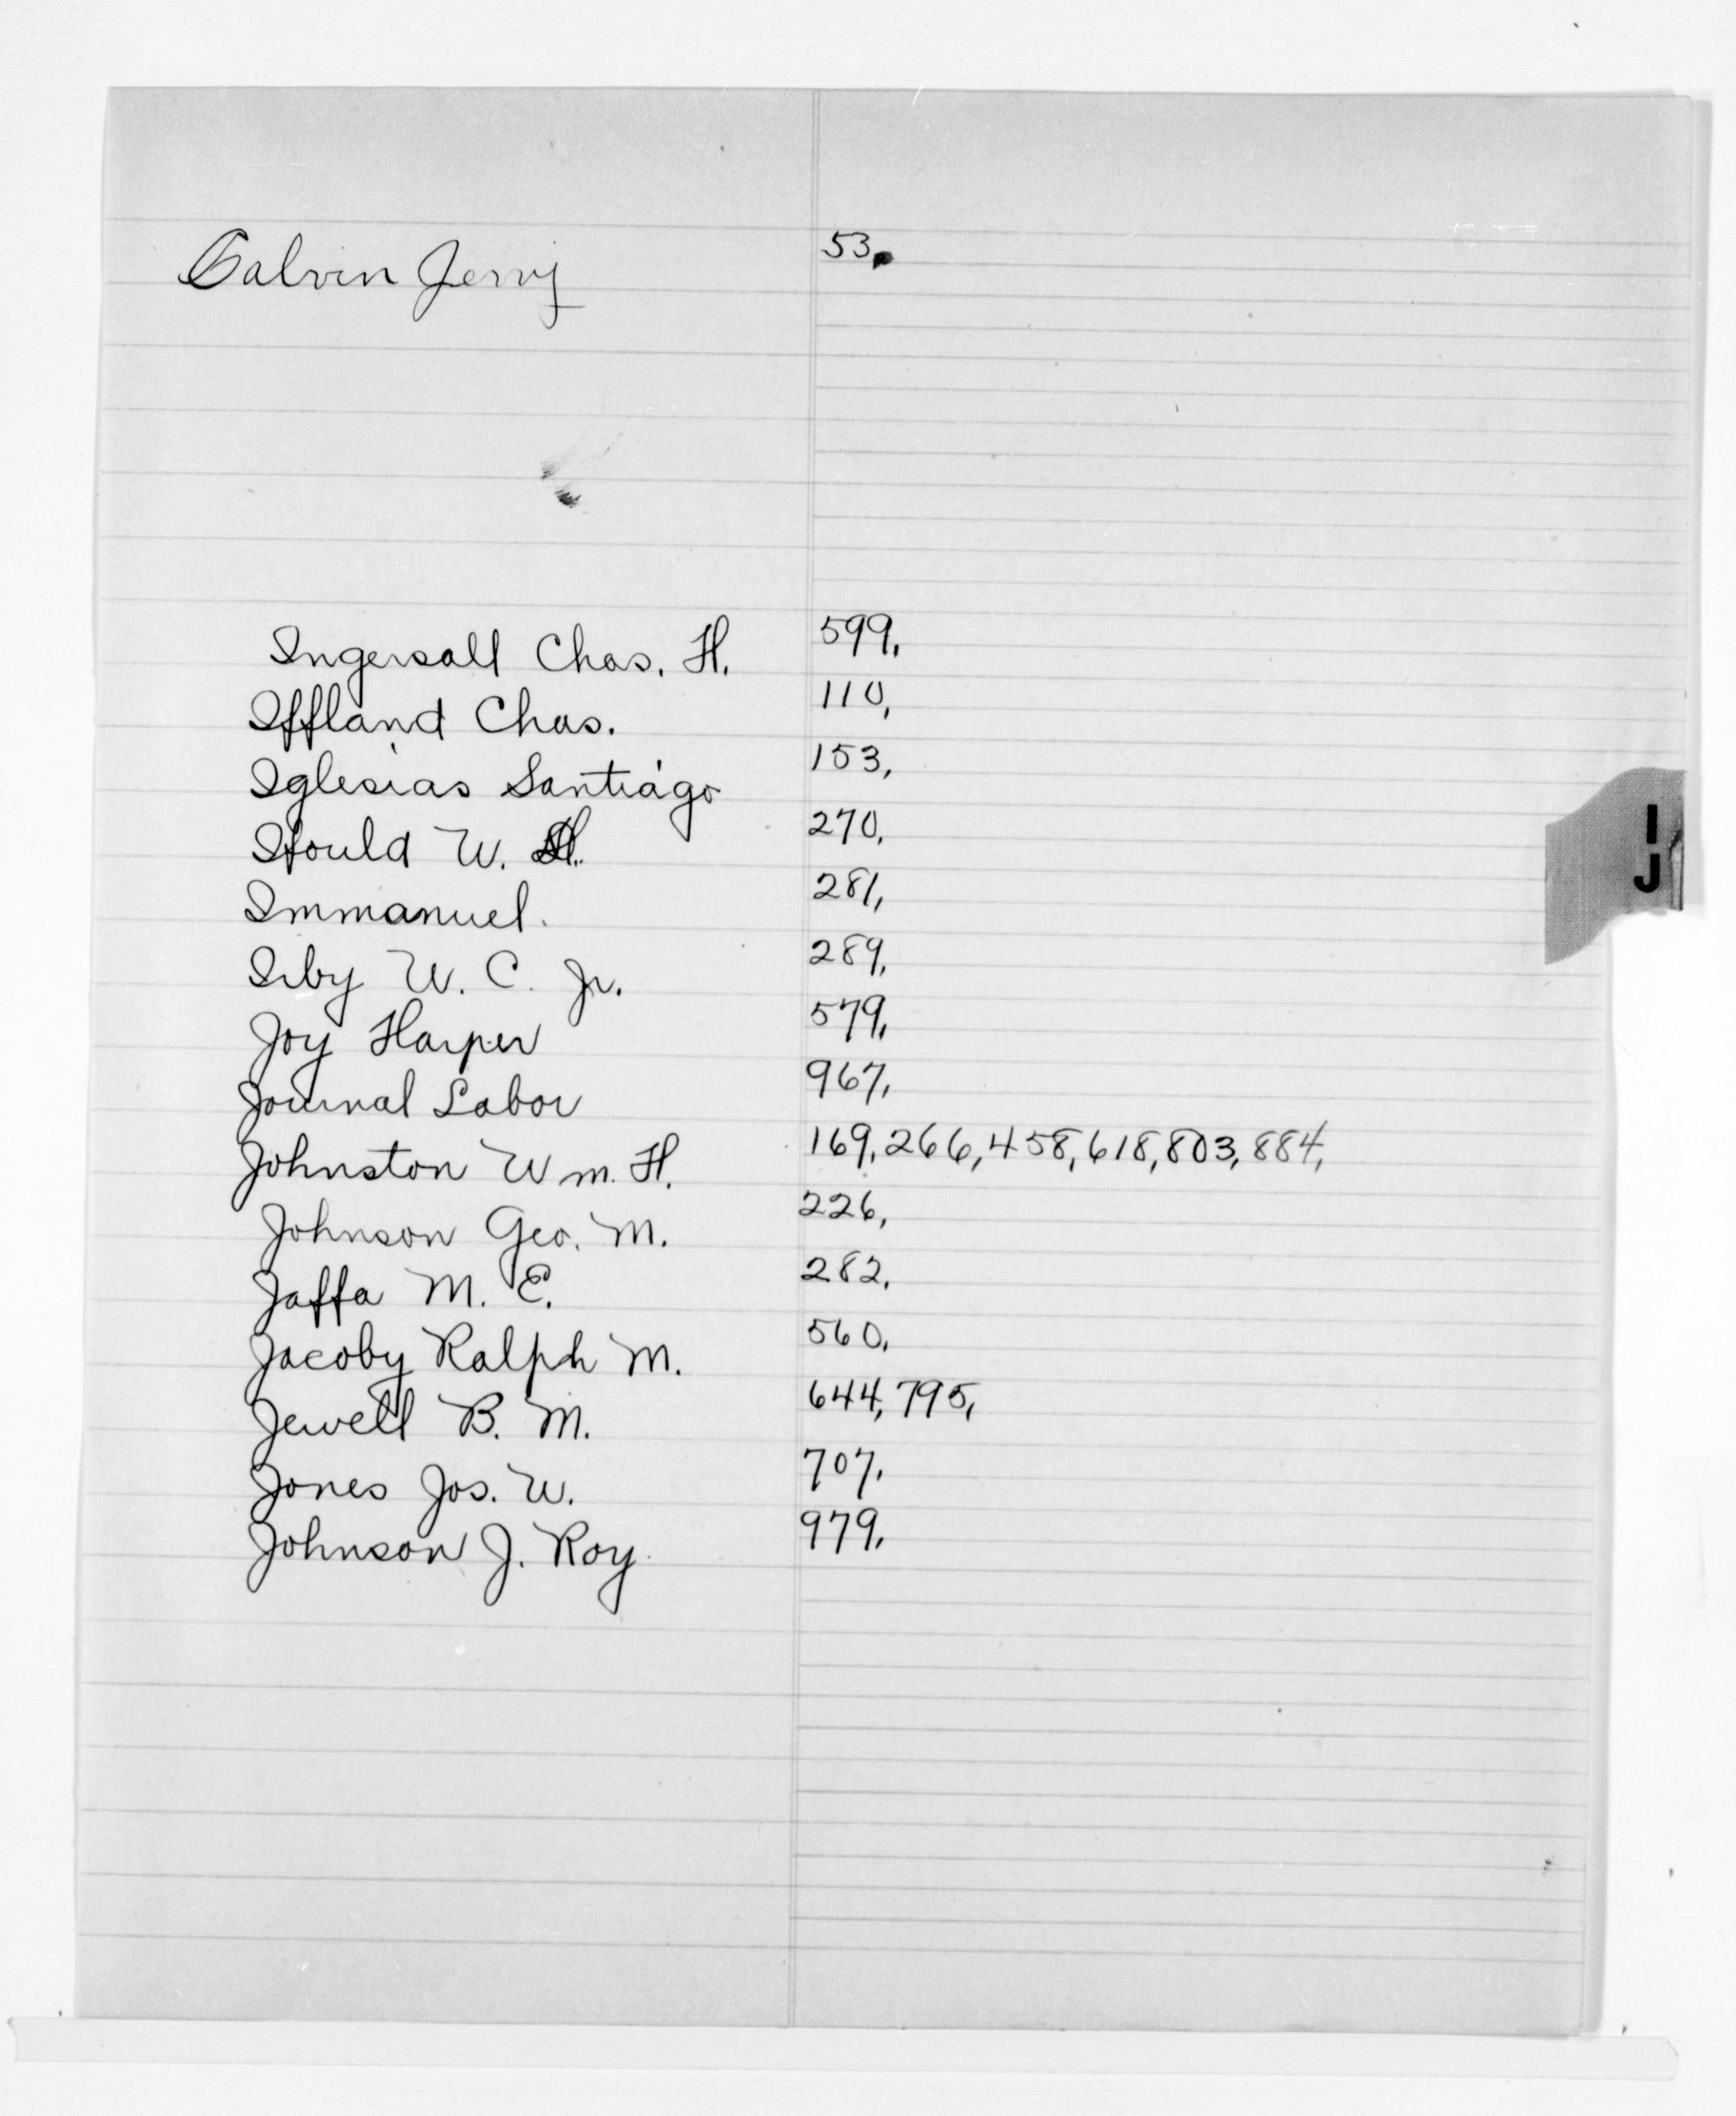 Galvin Jerry 53,
Ingersoll Chas. H. 599,
Iffland Chas. 110,
Iglesias Santiago 153,
Ifould W. H. 270,
Immanuel. 281,
I
J
Irby W. C. Jr. 289,
Joy Harper 579,
Journal Labor 967,
Johnston Wm. H. 169, 266, 458, 618, 803, 884,
Johnson Geo. M. 226,
Jaffa M. E. 282,
Jacoby Ralph M. 560,
Jewell B. M. 644, 795,
Jones Jos. W. 707,
Johnson J. Roy. 979,